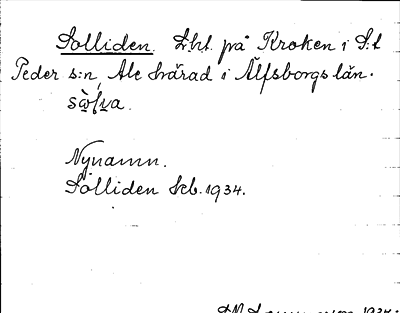 Solliden. Lht. på Kroken i S:t
Peder s:n, Ale härad i Älfsborgs län.
Nynamn.
Solliden Skb. 1934.
1934.